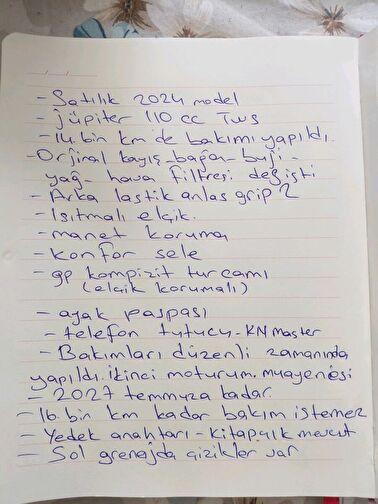 - Satılık 2024 model
- jüpiter 110 cc Tws
- 14 bin km de bakımı yapıldı.
- Orjinal kayış - baga - buji -
yağ - hava filtresi değişti
- Arka lastik anlas grip 2
- Isıtmalı elcik.
- manet koruma
- konfor sele
- gp kompizit tur camı
(elcik korumalı)
- ayak paspası
- telefon tutucu - KN Master
- Bakımları düzenli zamanında
yapıldı. ikinci moturum. muayenesi
- 2027 temmuza kadar.
- 16. bin km kadar bakım istemez
- Yedek anahtarı - kitapçık mevcut
- Sol grenajda çizikler var